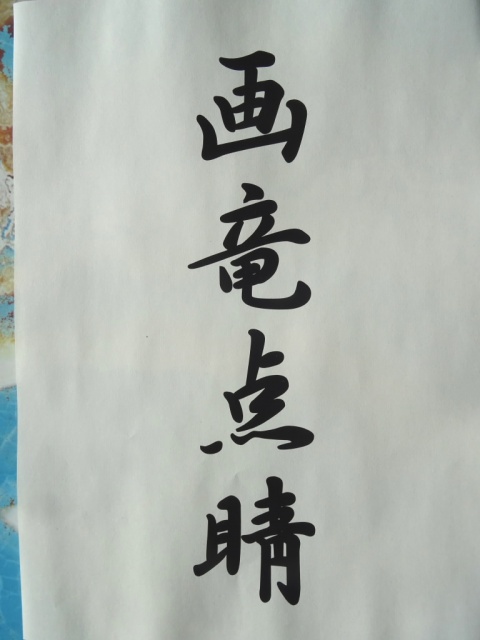 画竜点睛